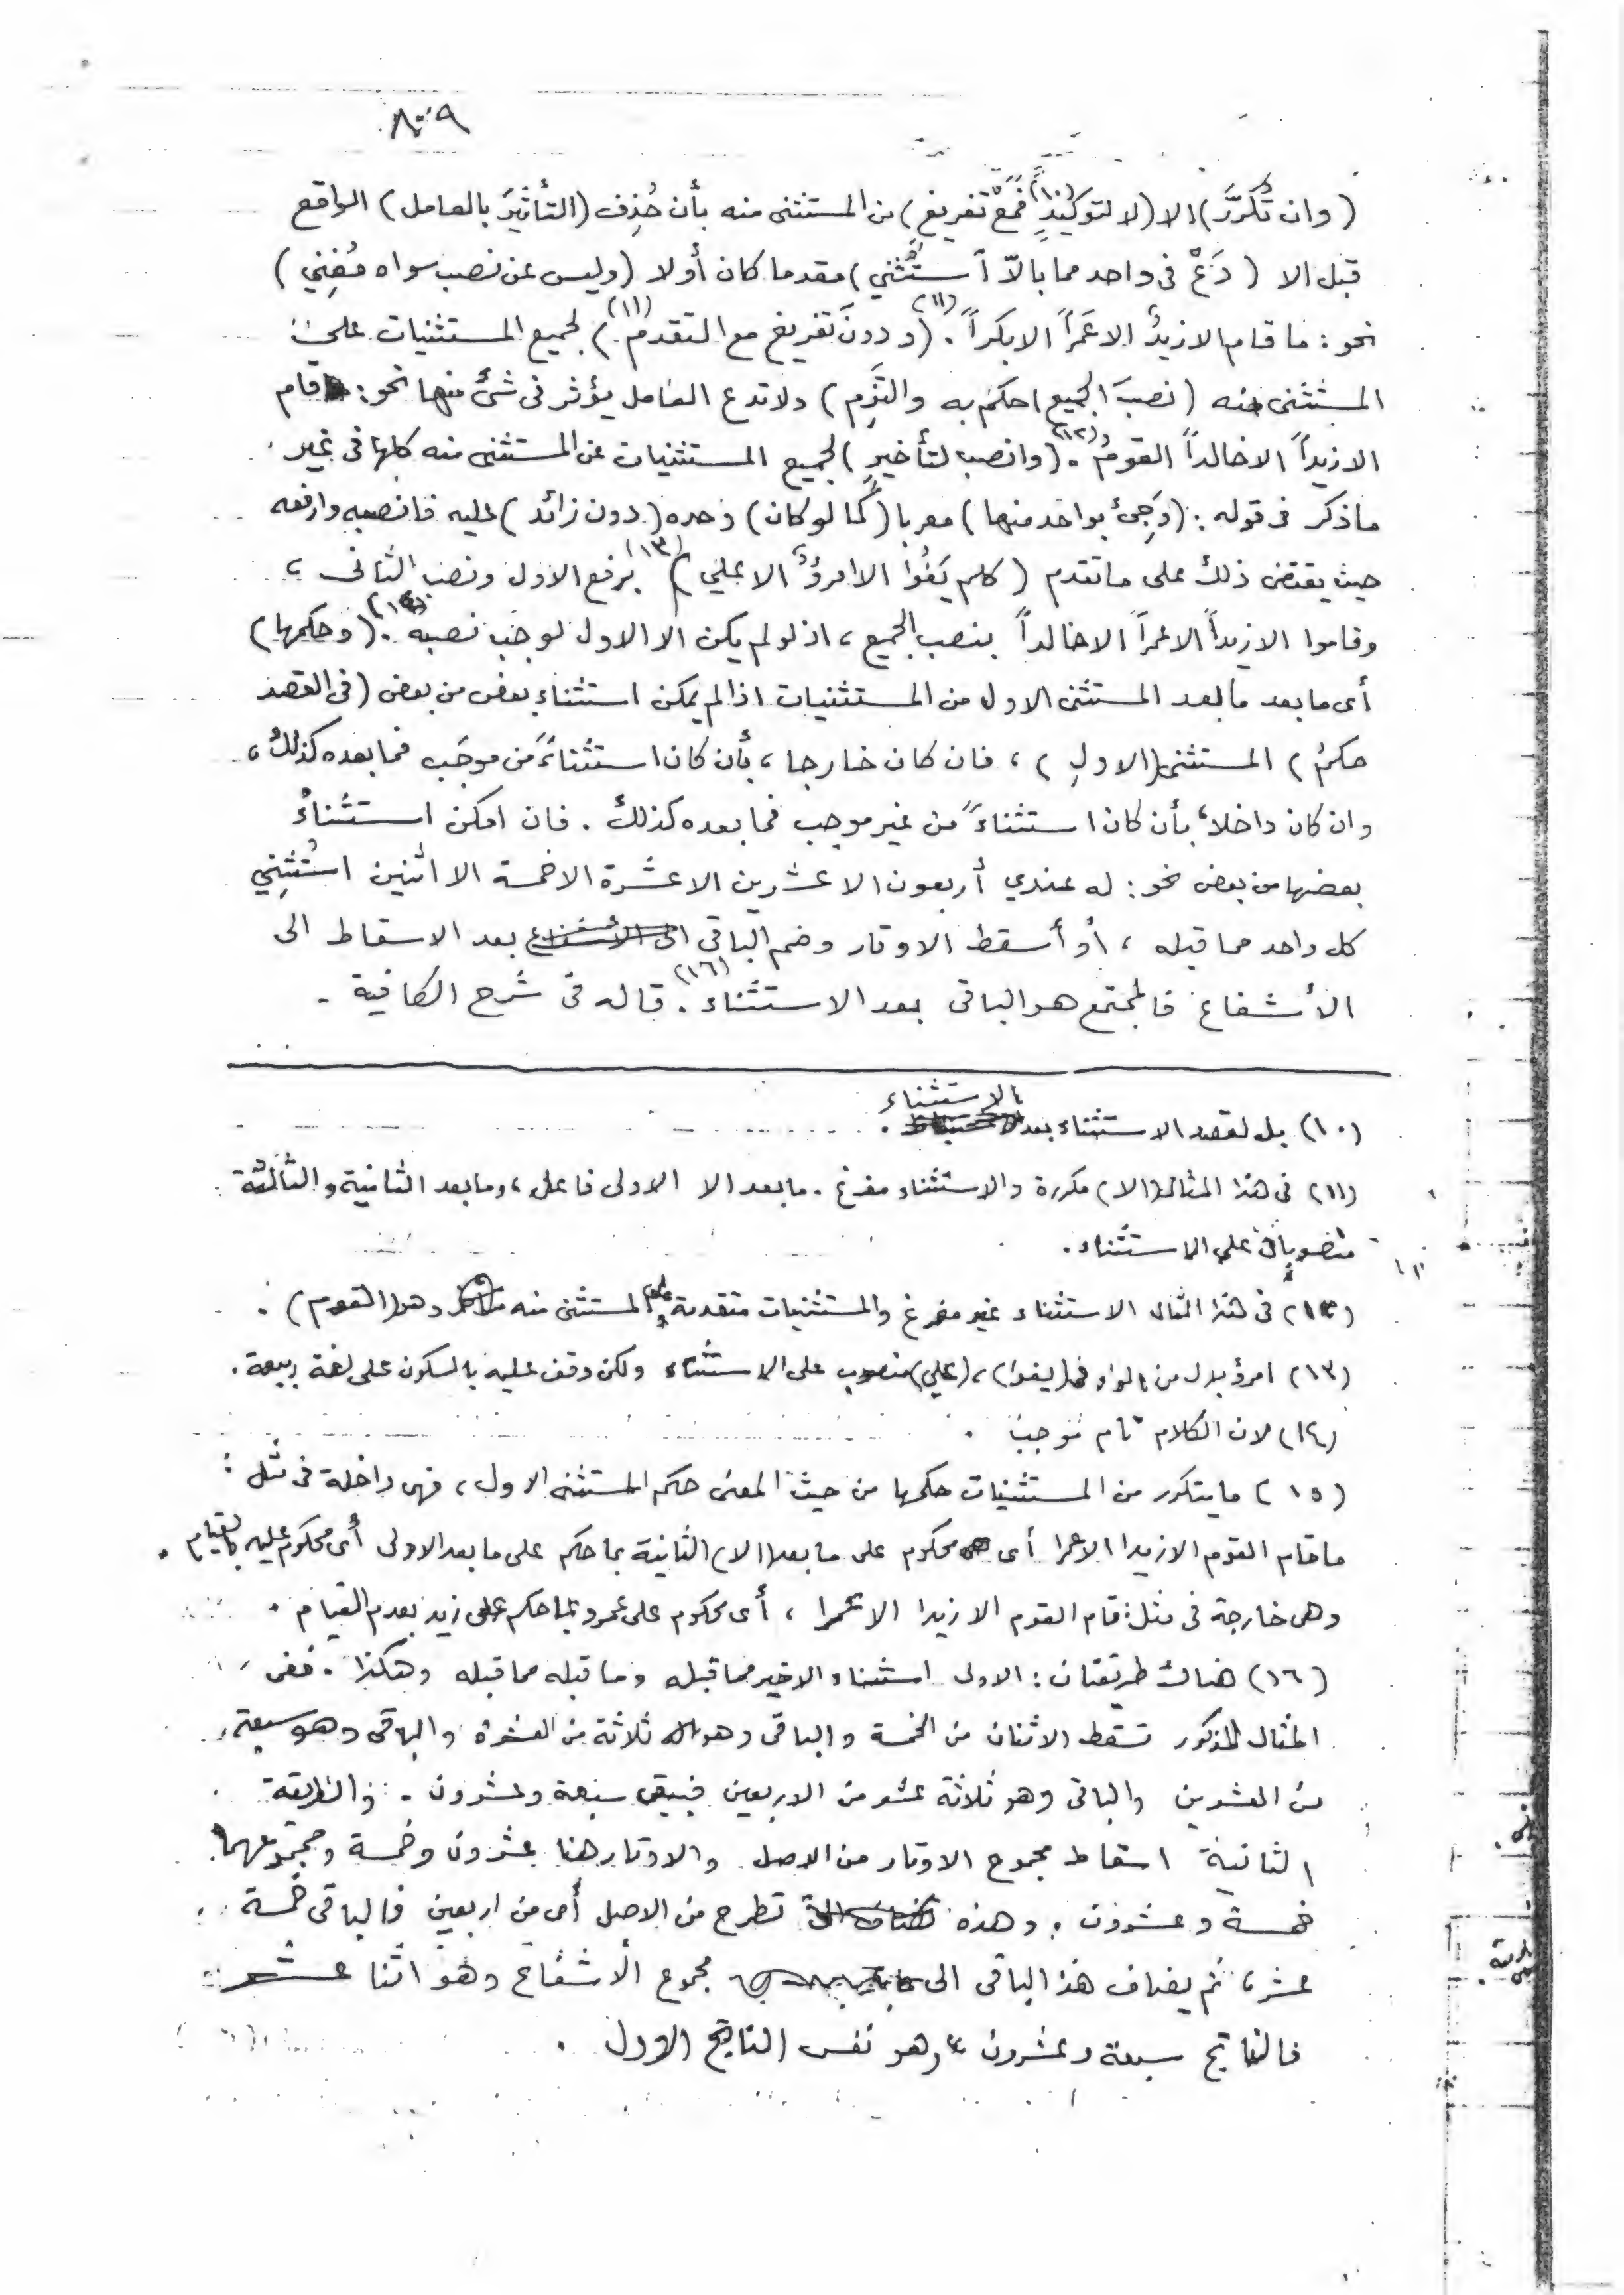 (وان تُكَرَّرَ) الا (لا لتوكيدٍ(١٠) فمَعْ تفريغٍ) من المستثنى منه بأن حُذِف (التأثيرَ بالعامل) الواقع
قبل الا (دَعْ فى واحد مما بالاّ اُستُثني) مقدما كان أولا (وليس عن نصب سواه مُغنِي)
نحو : ما قام الا زيدٌ الا عَمراً الا بكراً(١١) . (ودونَ تفريغ مع التقدم(١١)) لجميع المستثنيات على
المستثنى منه (نصبَ الجميع احكم به والتَزِم) ولا تدع العامل يؤثر فى شئ منها نحو : قام
الا زيداً الا خالداً القومُ(١٢) . (وانصب لتأخيرٍ) لجميع المستثنيات عن المستثنى منه كلها فى غير
ما ذكر فى قوله : (وَجِئْ بواحد منها) معربا (كما لو كان) وحده (دون زائد) عليه فانصبه وارفعه
حيث يقتضى ذلك على ما تقدم (كلم يَفُوا الا امرؤٌ الا علي)(١٣) برفع الاول ونصب الثانى ،
وقاموا الا زيداً الا عمراً الا خالداً بنصب الجميع ، اذ لو لم يكن الا الاول لوجب نصبه(١٤) . (وحكمها)
أى ما بعد ما بعد المستثنى الاول من المستثنيات اذا لم يمكن استثناء بعض من بعض (فى القصد
حكمُ) المستثنى (الاولِ) ، فان كان خارجا ، بأن كان استثناءً من موجَب فما بعده كذلك ،
وان كان داخلا ، بأن كان استثناءً من غير موجب فما بعده كذلك . فان امكن استثناءُ
بعضها من بعض نحو : له عندي أربعون الا عشرين الا عشرة الا خمسة الا اثنين استُثنِي
كل واحد مما قبله ، أو أسقط الاوتار وضم الباقى بعد الاسقاط الى
الأشفاع فالمجتمع هو الباقى بعد الاستثناء(١٦) . قاله فى شرح الكافية -
(١٠) بل لقصد الاستثناء بعد الاستثناء .
(١١) فى هذا المثال (الا) مكررة والاستثناء مفرغ . ما بعد الا الاولى فاعل ، وما بعد الثانية والثالثة
منصوبان على الاستثناء .
(١٢) فى هذا المثال الاستثناء غير مفرغ والمستثنيات متقدمة على المستثنى منه وهو (القوم) .
(١٣) امرؤ بدل من الواو فى (يفوا) ، (علي) منصوب على الاستثناء ولكن وقف عليه بالسكون على لغة ربيعة .
(١٤) لان الكلام تام موجب .
(١٥) ما يتكرر من المستثنيات حكمها من حيث المعنى حكم المستثنى الاول ، فهى داخلة فى مثل :
ما قام القوم الا زيدا الا عمرا أى محكوم على ما بعد (الا) الثانية بما حكم على ما بعد الاولى أى محكوم عليه بالقيام .
وهى خارجة فى مثل : قام القوم الا زيدا الا عمرا ، أى محكوم على عمرو بما حكم على زيد بعدم القيام .
(١٦) هناك طريقتان : الاولى استثناء الاخير مما قبله وما قبله مما قبله وهكذا . ففى
المثال المذكور تسقط الاثنان من الخمسة والباقى وهو ثلاثة من العشرة والباقى وهو سبعة
من العشرين والباقى وهو ثلاثة عشر من الاربعين فيبقى سبعة وعشرون . والطريقة
الثانية اسقاط مجموع الاوتار من الاصل والاوتار هنا عشرون وخمسة ومجموعهما
خمسة وعشرون . وهذه تطرح من الاصل أى من اربعين فالباقى خمسة
عشر ، ثم يضاف هذا الباقى الى مجموع الأشفاع وهو اثنا عشر
فالناتج سبعة وعشرون ، وهو نفس الناتج الاول .